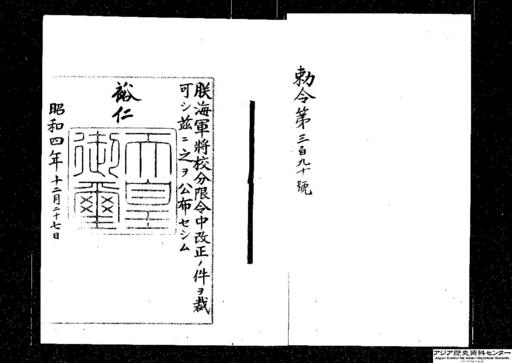 勅令第三百九十號
朕海軍將校分限令中改正ノ件ヲ裁
可シ茲ニ之ヲ公布セシム
裕仁
天皇
御璽
昭和四年十二月二十七日
アジア歴史資料センター
Japan Center for Asian Historical Records